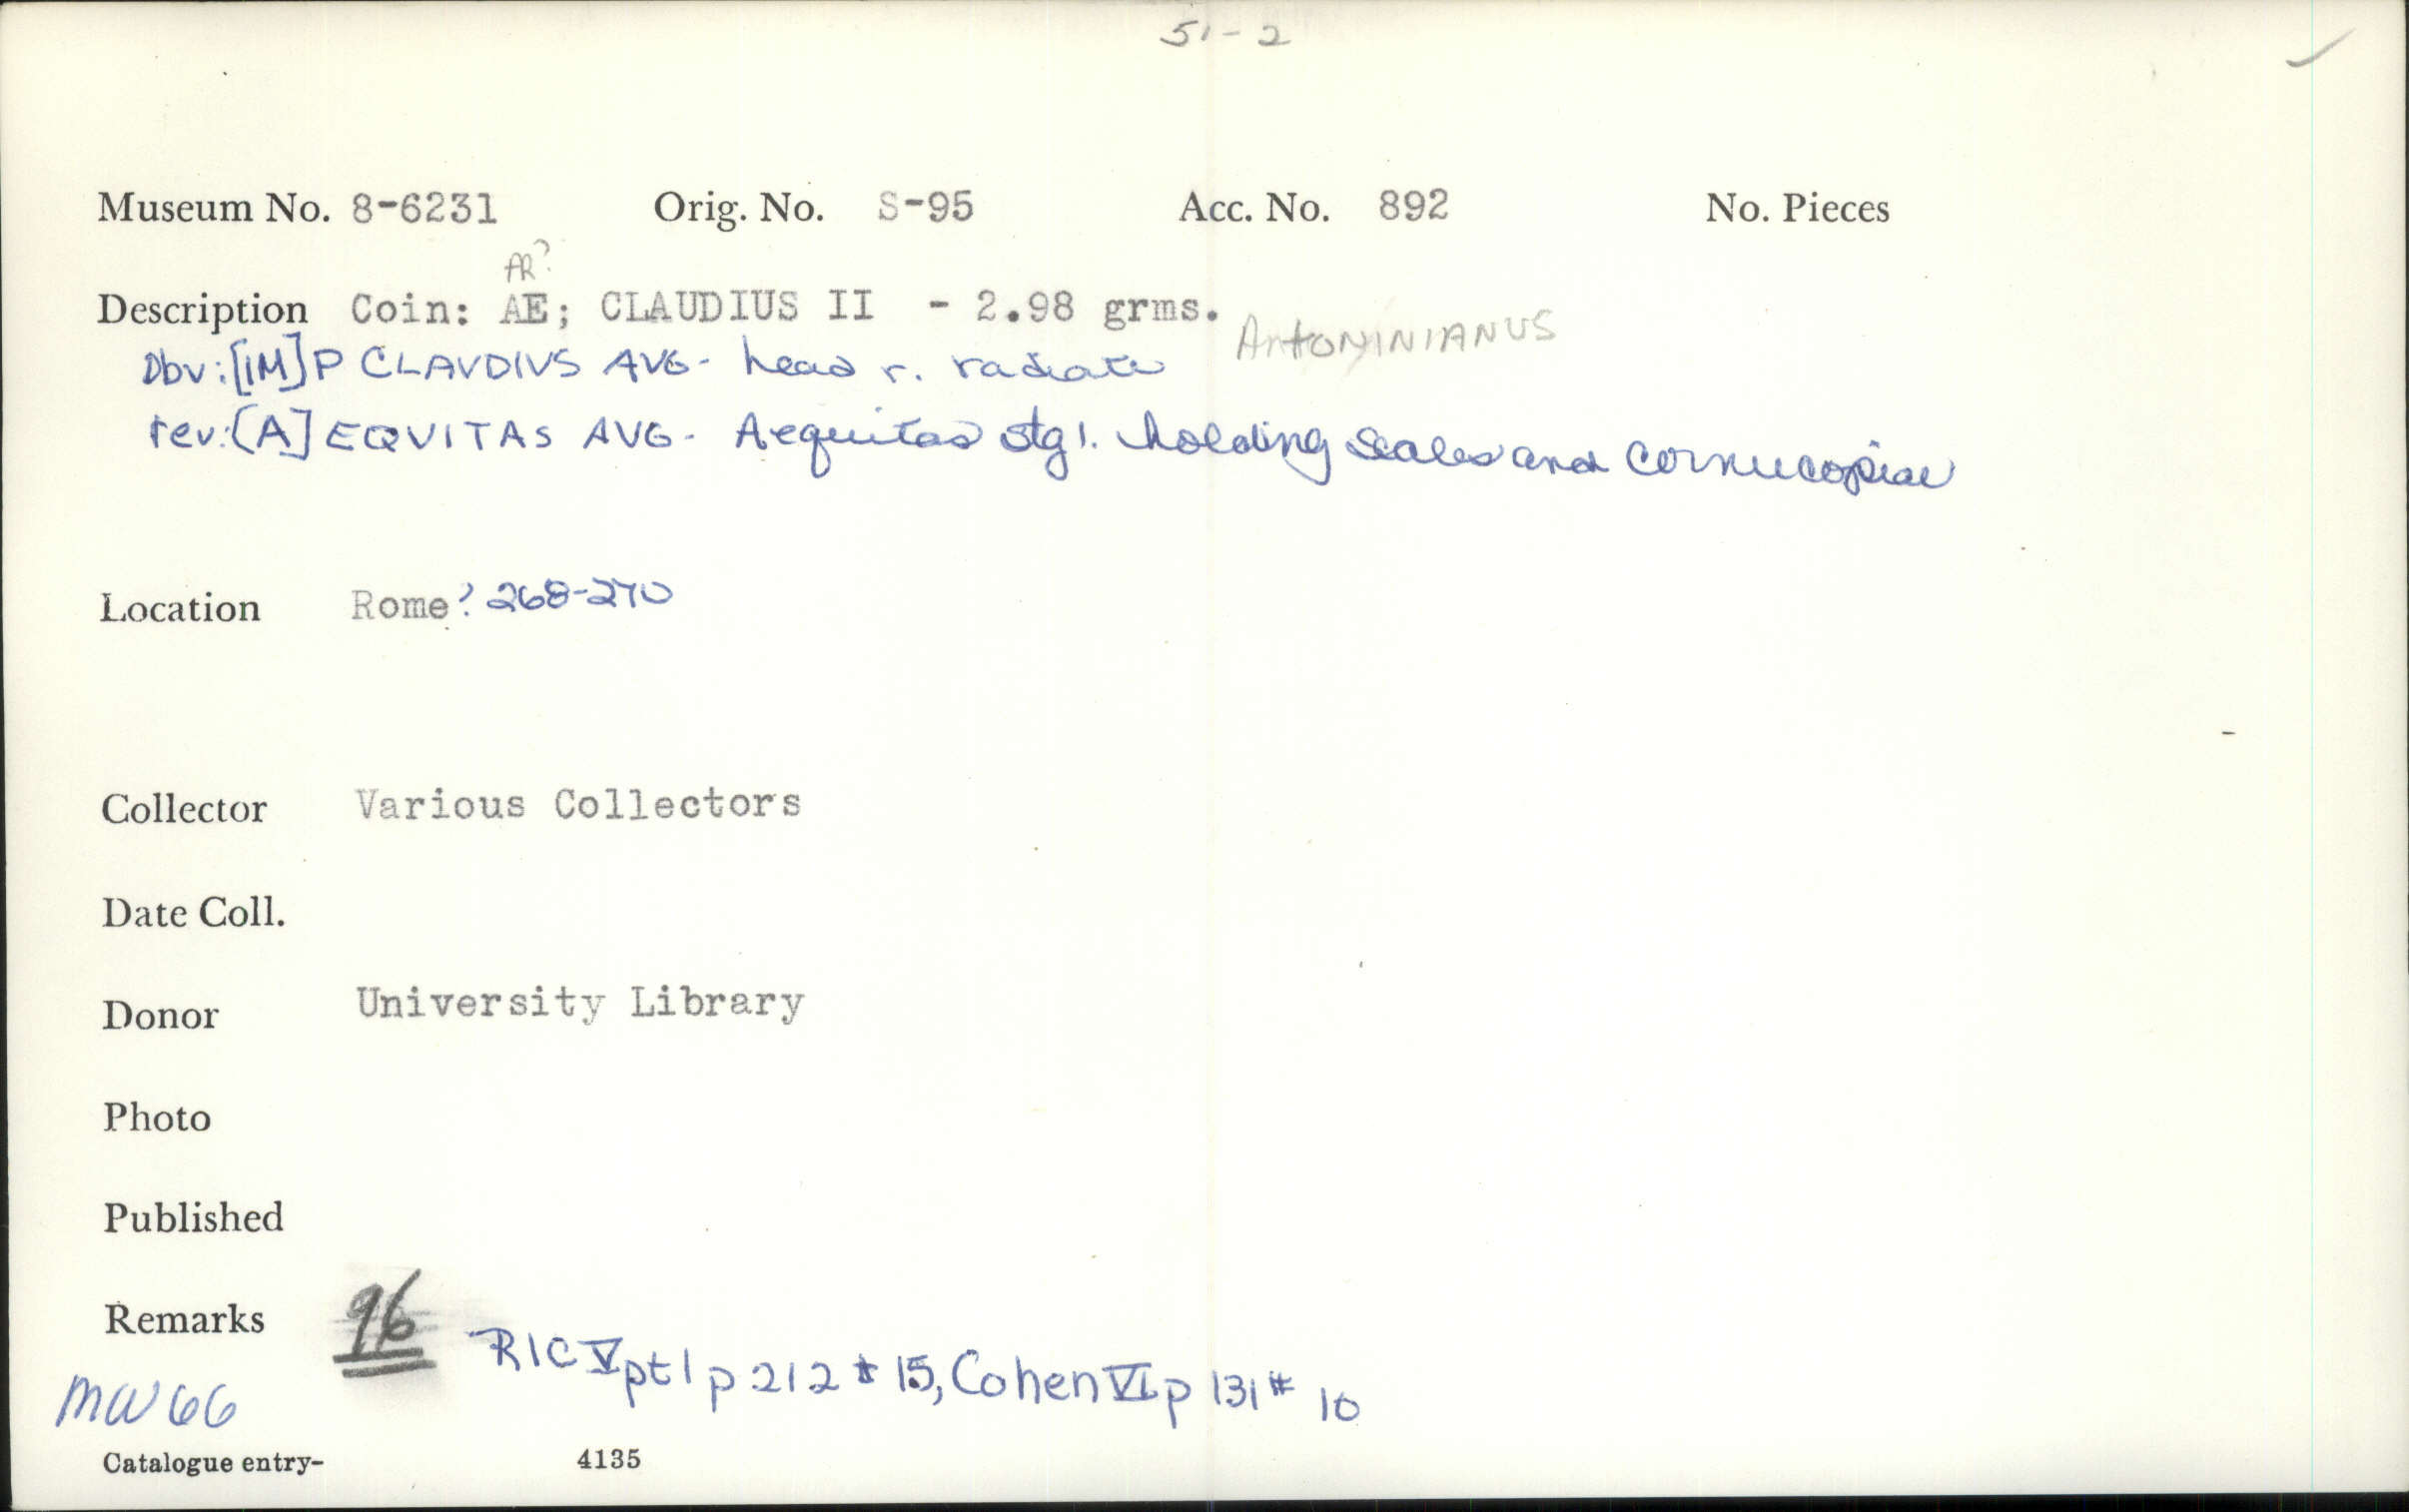 51-2
Museum No. 8-6231 Orig. No. S-95 Acc. No. 892 No. Pieces
AR?
Description Coin: AE; CLAUDIUS II - 2.98 grms. Antoninianus
Obv: [IM]P CLAVDIVS AVG- head r. radiate
rev: [A]EQVITAS AVG- Aequitas stg l. holding scales and cornucopiae
Location Rome? 268-270
Collector Various Collectors
Date Coll.
Donor University Library
Photo
Published
Remarks 96
RIC V pt 1 p 212 # 15, Cohen VI p 131 # 10
MW 66
Catalogue entry- 4135